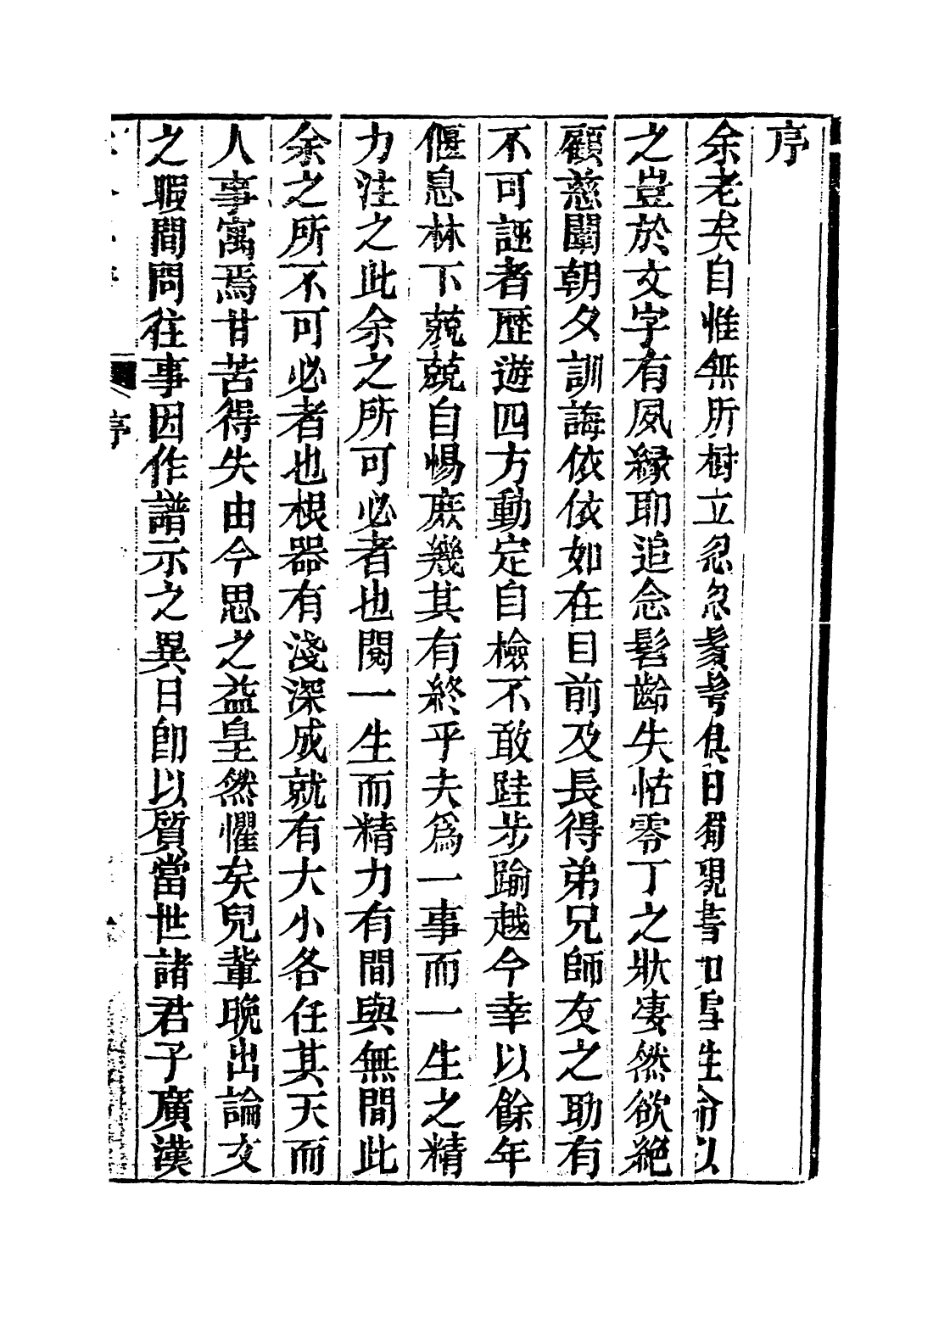 序
余老矣自惟無所樹立忽忽鬚髩俱白獨視書如
之豈於文字有夙緣耶追念髫齡失怙零丁之狀凄然欲絕
顧慈闈朝夕訓誨依依如在目前及長得弟兄師友之助有
不可誣者歷遊四方動定自檢不敢跬步踰越今幸以餘年
偃息林下兢兢自惕庶幾其有終乎夫爲一事而一生之精
力注之此余之所可必者也閱一生而精力有間與無間此
余之所不可必者也根器有淺深成就有大小各任其天而
人事寓焉甘苦得失由今思之益皇然懼矣兒輩晚出論文
之暇間問往事因作譜示之異日卽以質當世諸君子廣漢
序